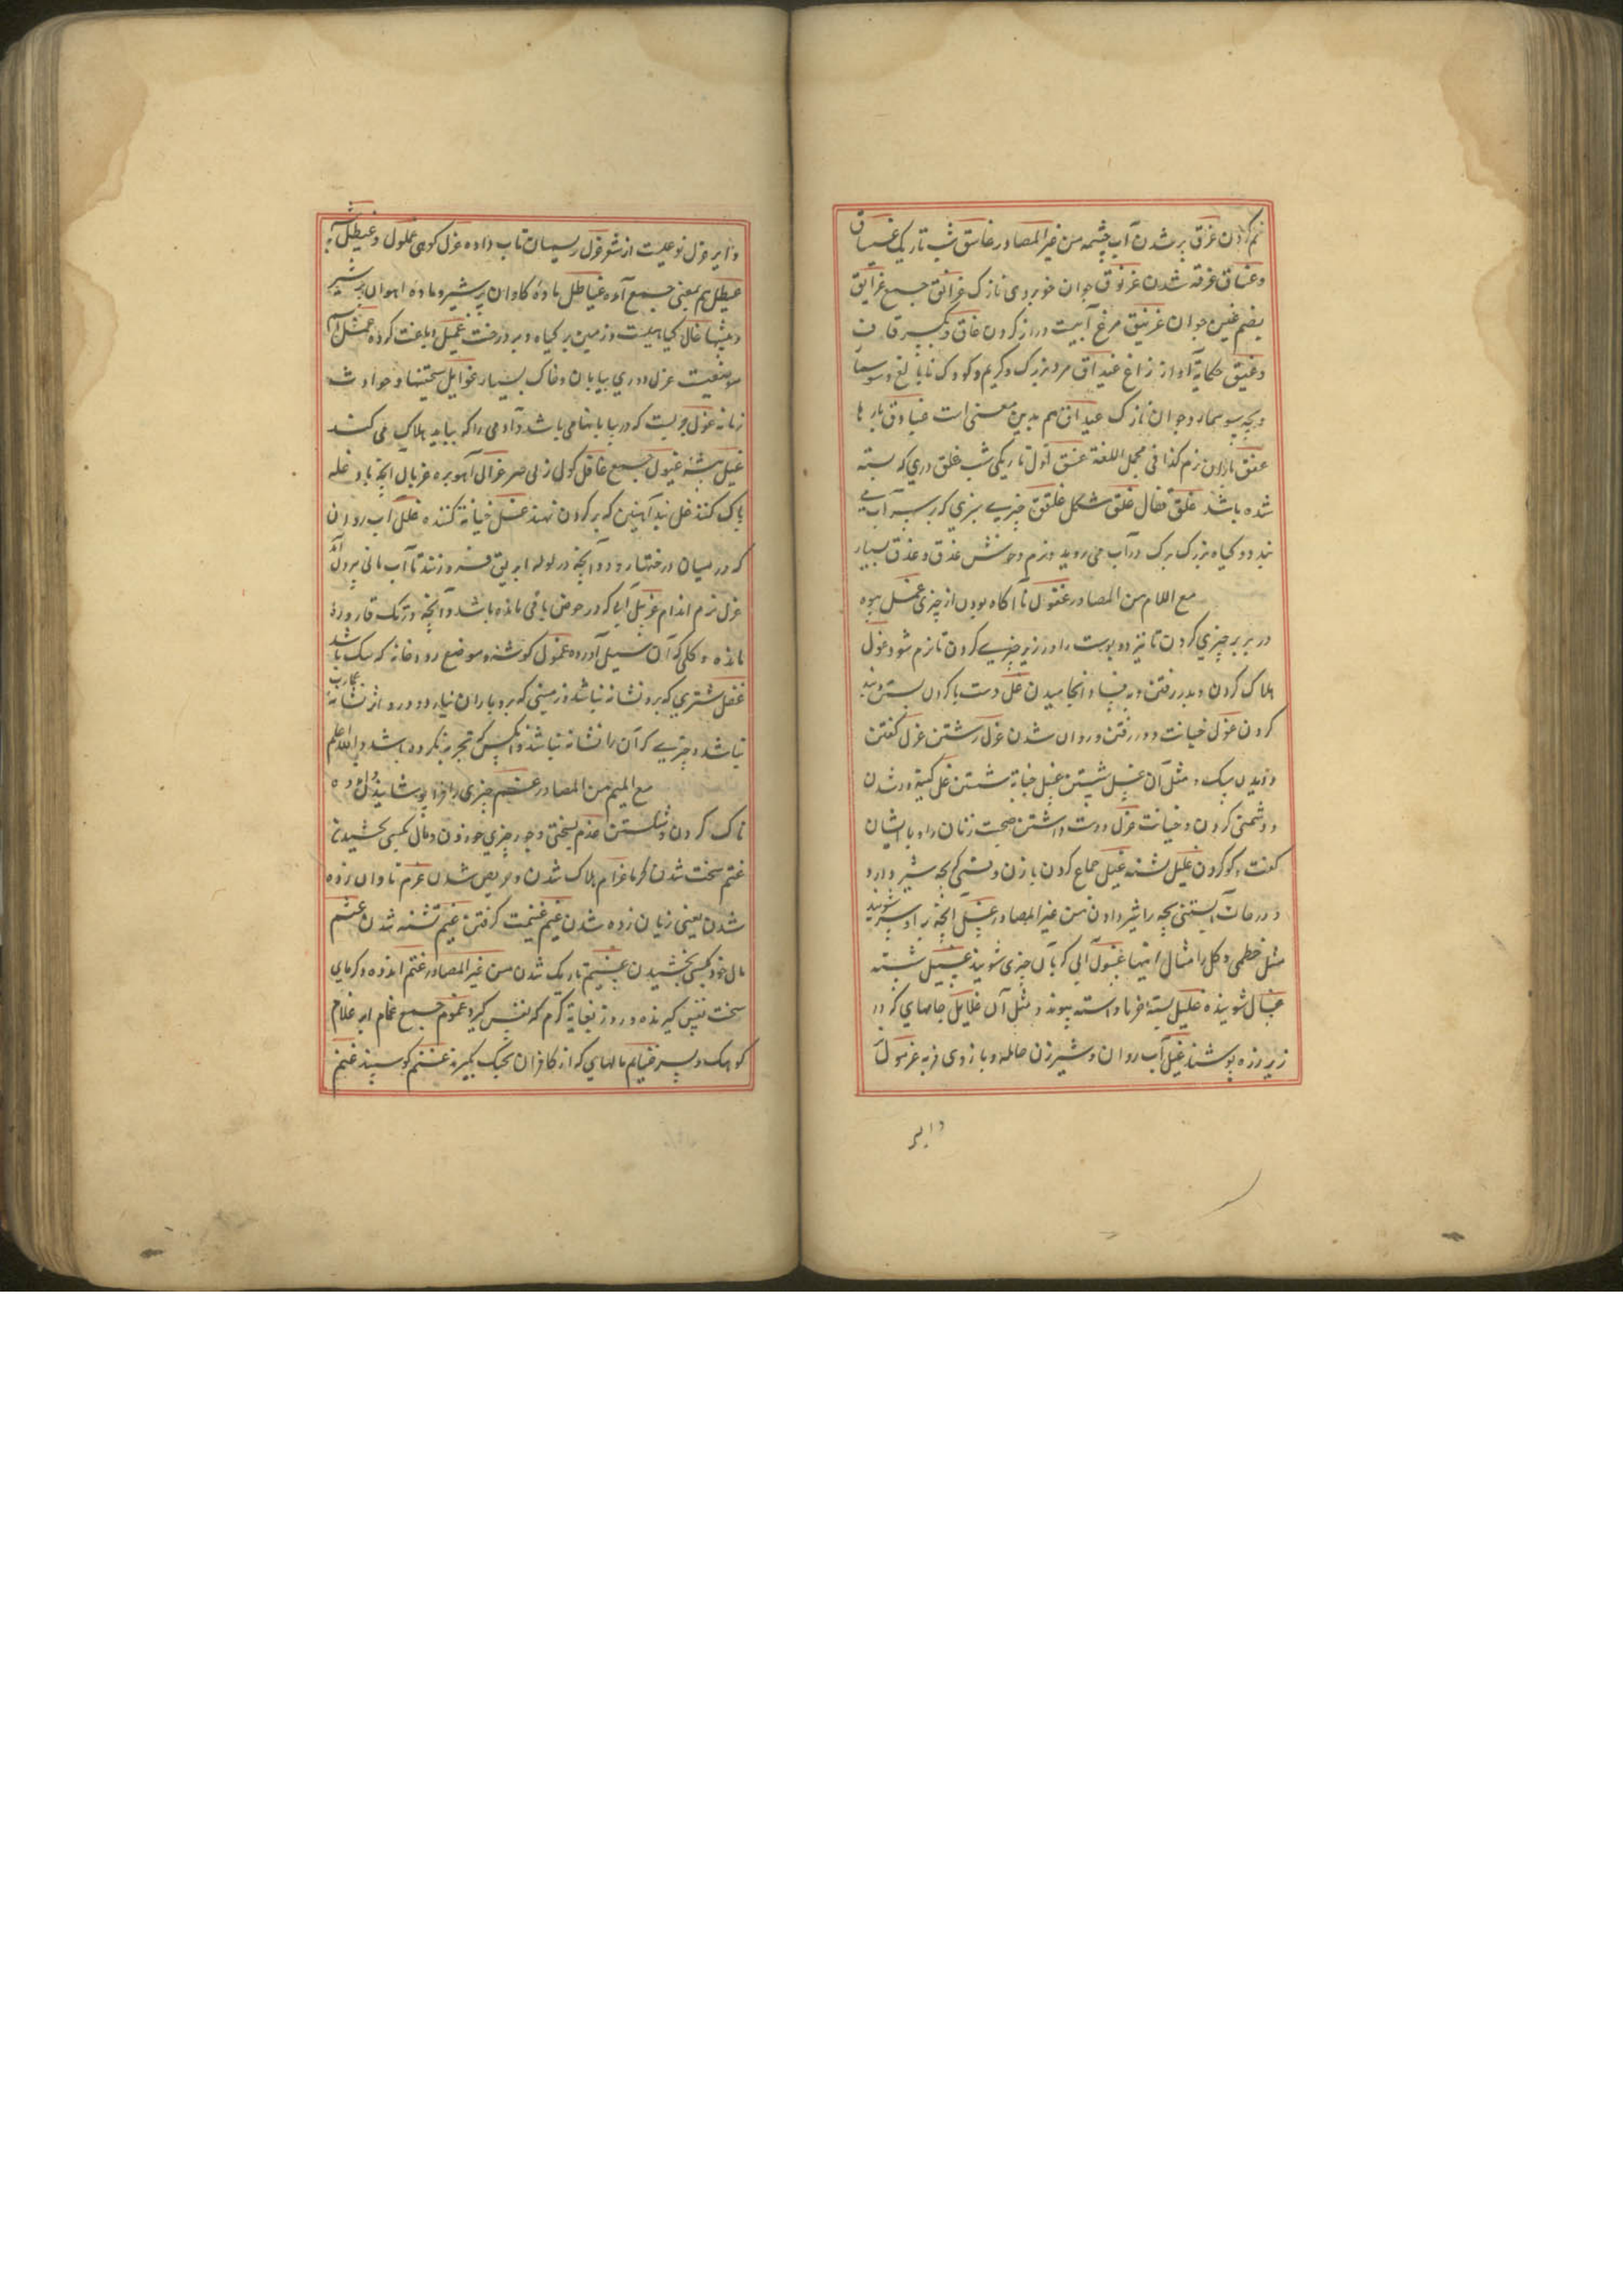 نم کردن غرق پر شدن آب چشمه من غیر المصادر غاسق شب تاریک غساق
و غساق غرقه شدن غرنوق جوان خوبروی نازک غرانق جمع غرانیق
بضم غین جوان غرنیق مرغ آبیست دراز گردن غاق بکسر قاف
و غیق حکایة آواز زاغ غیداق مرد بزرگ و کریم و کودک نابالغ و سوسمار
و بچه سوسمار و جوان نازک غیداق هم بدین معنی است غیادق بارها
غدق باران نرم کذا فی مجمل اللغة غسق اول تاریکی شب غلق دری که بسته
شده باشد غلق قفال غلق مشکل غلفق چیزی سبزی که بر سر آب می
بندد و گیاه بزرگ برگ در آب می روید و نرم و خوش غدق و غذق بسیار
مع اللام من المصادر غفول ناآگاه بودن از چیزی غمل میوه
در زیر چیزی کردن تا پزد و پوست را در زیر چیزی کردن تا نرم شود غول
هلاک کردن و بدر رفتن و بدفسا و انجامیدن غل دست با گردن بستن و بند
کردن غول خیانت و در رفتن و روان شدن غزل رشتن غزل گفتن
دزدیدن سبک و مثل آن غسل شستن غسل خیانة شستن غل کینه ور شدن
و دشمنی کردن و خیانت غزل دوست داشتن صحبت زنان را و با ایشان
گفت و گو کردن غلیل تشنه غیل جماع کردن با زن و نشی که بچه شیر دارد
و در حالت آبستنی بچه را شیر دادن من غیر المصادر غسل آنچه بدو سر شویند
مثل خطمی و گل و امثال اینها غسول آبی که بآن چیزی شویند غسیل شسته
غسال شوینده غلیل بسته خرما و استه پیوند و مثل آن غلایل جامهای که در
زیر زره پوشند غیل آب روان و شیر زن حامله و بازوی فربه غرمول
دایر
دایر غزل نوعیست از شعر غزل ریسمان تاب داده غزل کوهی غملول و غیطل
غیطل هم بمعنی جمع آمده غیاطل ماده گاوان پر شیر و ماده آهوان پر شیر
و بیشها غال گیاهیست و زمین پر گیاه و پر درخت غمیل دباغت کرده غمثل نام
موضعیست غول دوری بیابان و خاک بسیار غوایل سختیها و حوادث
زمانه غول جویست که در بیابانها می باشد و آدمی را که بیابد هلاک می کند
غیل بیشه غیول جمع غافل گول زلی صر غزال آهوبره غربال آنچه بدو غله
پاک کنند غل بند آهنین که بر گردن نهند غسل خیانة کننده غلل آب روان
که در میان درختها رود و آنچه در لوله ابریق فرو زنند تا آب مانی برون آید
غزل نرم اندام غربیل آبی که در حوض باقی مانده باشد و آنچه در تک قاروره
مانده و گلی که آن سیل آورده غملول گوشه و موضع رودخانه که تنک باشد
غفل شتری که برو نشانه نباشد و زمینی که برو باران نبارد و در و از نشانه عمارت
نباشد و چیزی که آن را نشانه نباشد و آنکس که تجربه نکرده باشد و الله اعلم
مع المیم من المصادر غشم چیزی را فرا پوشانیدن و
ناک کردن و شکستن غذم بسختی و جور چیزی خوردن و مال بکسی بخشیدن
غتم سخت شدن گرما غرام هلاک شدن و حریص شدن غرم تاوان زده
شدن یعنی زیان زده شدن غنم غنیمت گرفتن غیم تشنه شدن غشم
مال خود بکسی بخشیدن غشیم تاریک شدن من غیر المصادر غتم اندوه و گرمای
سخت نفس گیرنده و روز بغایة گرم که نفس گیرد غموم جمع غمام ابر غلام
کوهک و پسر غنایم مالهای که از کافران بجنگ گیرند غنم گوسپند غنم